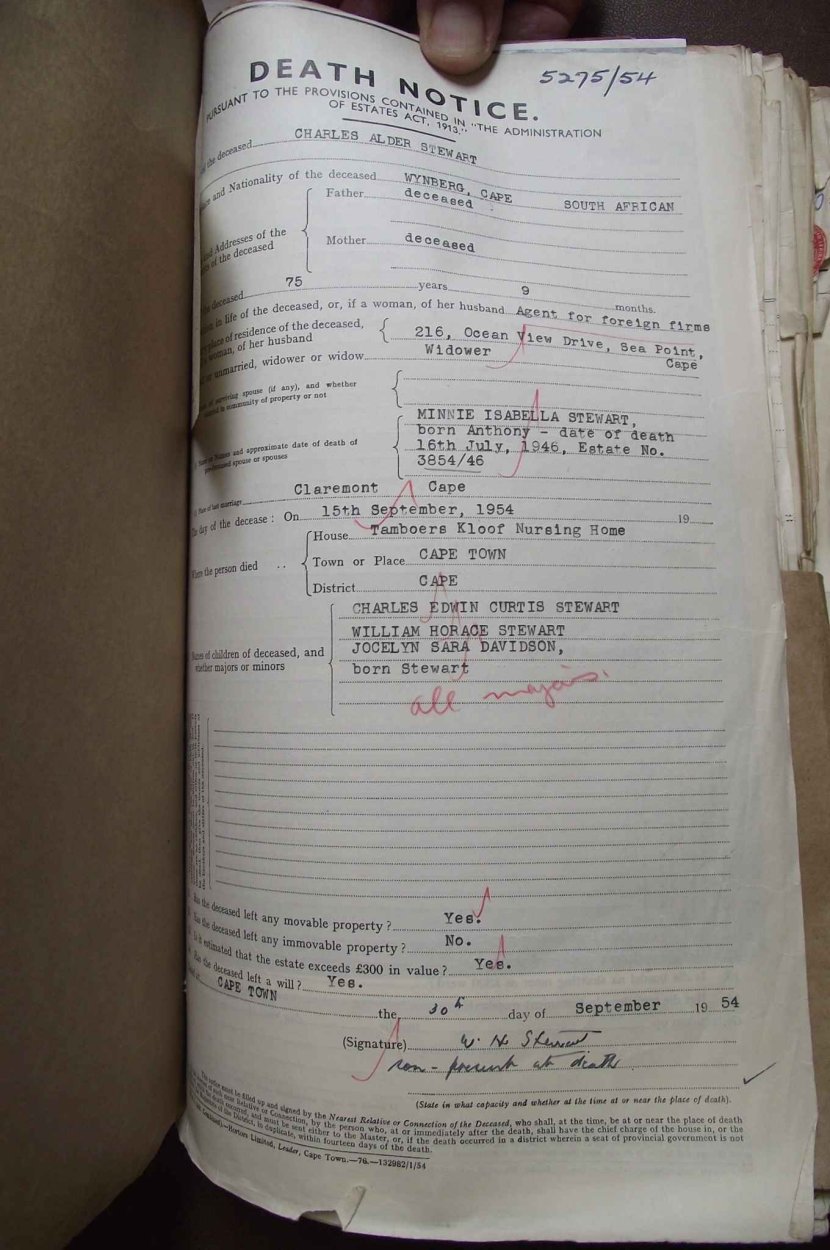 5275/54
DEATH NOTICE.
PURSUANT TO THE PROVISIONS CONTAINED IN "THE ADMINISTRATION
OF ESTATES ACT, 1913."
the deceased CHARLES ALDER STEWART
and Nationality of the deceased WYNBERG, CAPE SOUTH AFRICAN
Father deceased
Addresses of the
of the deceased
Mother deceased
deceased 75 years 9 months.
in life of the deceased, or, if a woman, of her husband Agent for foreign firms
place of residence of the deceased,
woman, of her husband
216, Ocean View Drive, Sea Point,
Cape
unmarried, widower or widow Widower
surviving spouse (if any), and whether
in community of property or not
MINNIE ISABELLA STEWART,
born Anthony - date of death
and approximate date of death of
spouse or spouses
16th July, 1946, Estate No.
3854/46
Place of last marriage Claremont Cape
The day of the decease: On 15th September, 1954 19
Where the person died
House Tamboers Kloof Nursing Home
Town or Place CAPE TOWN
District CAPE
Names of children of deceased, and
whether majors or minors
CHARLES EDWIN CURTIS STEWART
WILLIAM HORACE STEWART
JOCELYN SARA DAVIDSON,
born Stewart
all majors.
Has the deceased left any movable property? Yes.
Has the deceased left any immovable property? No.
Is it estimated that the estate exceeds £300 in value? Yes.
Has the deceased left a will? Yes.
CAPE TOWN the 30th day of September 19 54
(Signature) W. H. Stewart
son - present at death
(State in what capacity and whether at the time at or near the place of death).
This notice must be filled up and signed by the Nearest Relative or Connection of the Deceased, who shall, at the time, be at or near the place of death
of such near Relative or Connection, by the person who, at or immediately after the death, shall have the chief charge of the house in, or the
death occurred, and must be sent either to the Master, or, if the death occurred in a district wherein a seat of provincial government is not
of the District, in duplicate, within fourteen days of the death.
Horton Limited, Leader, Cape Town.—76.—132982/1/54